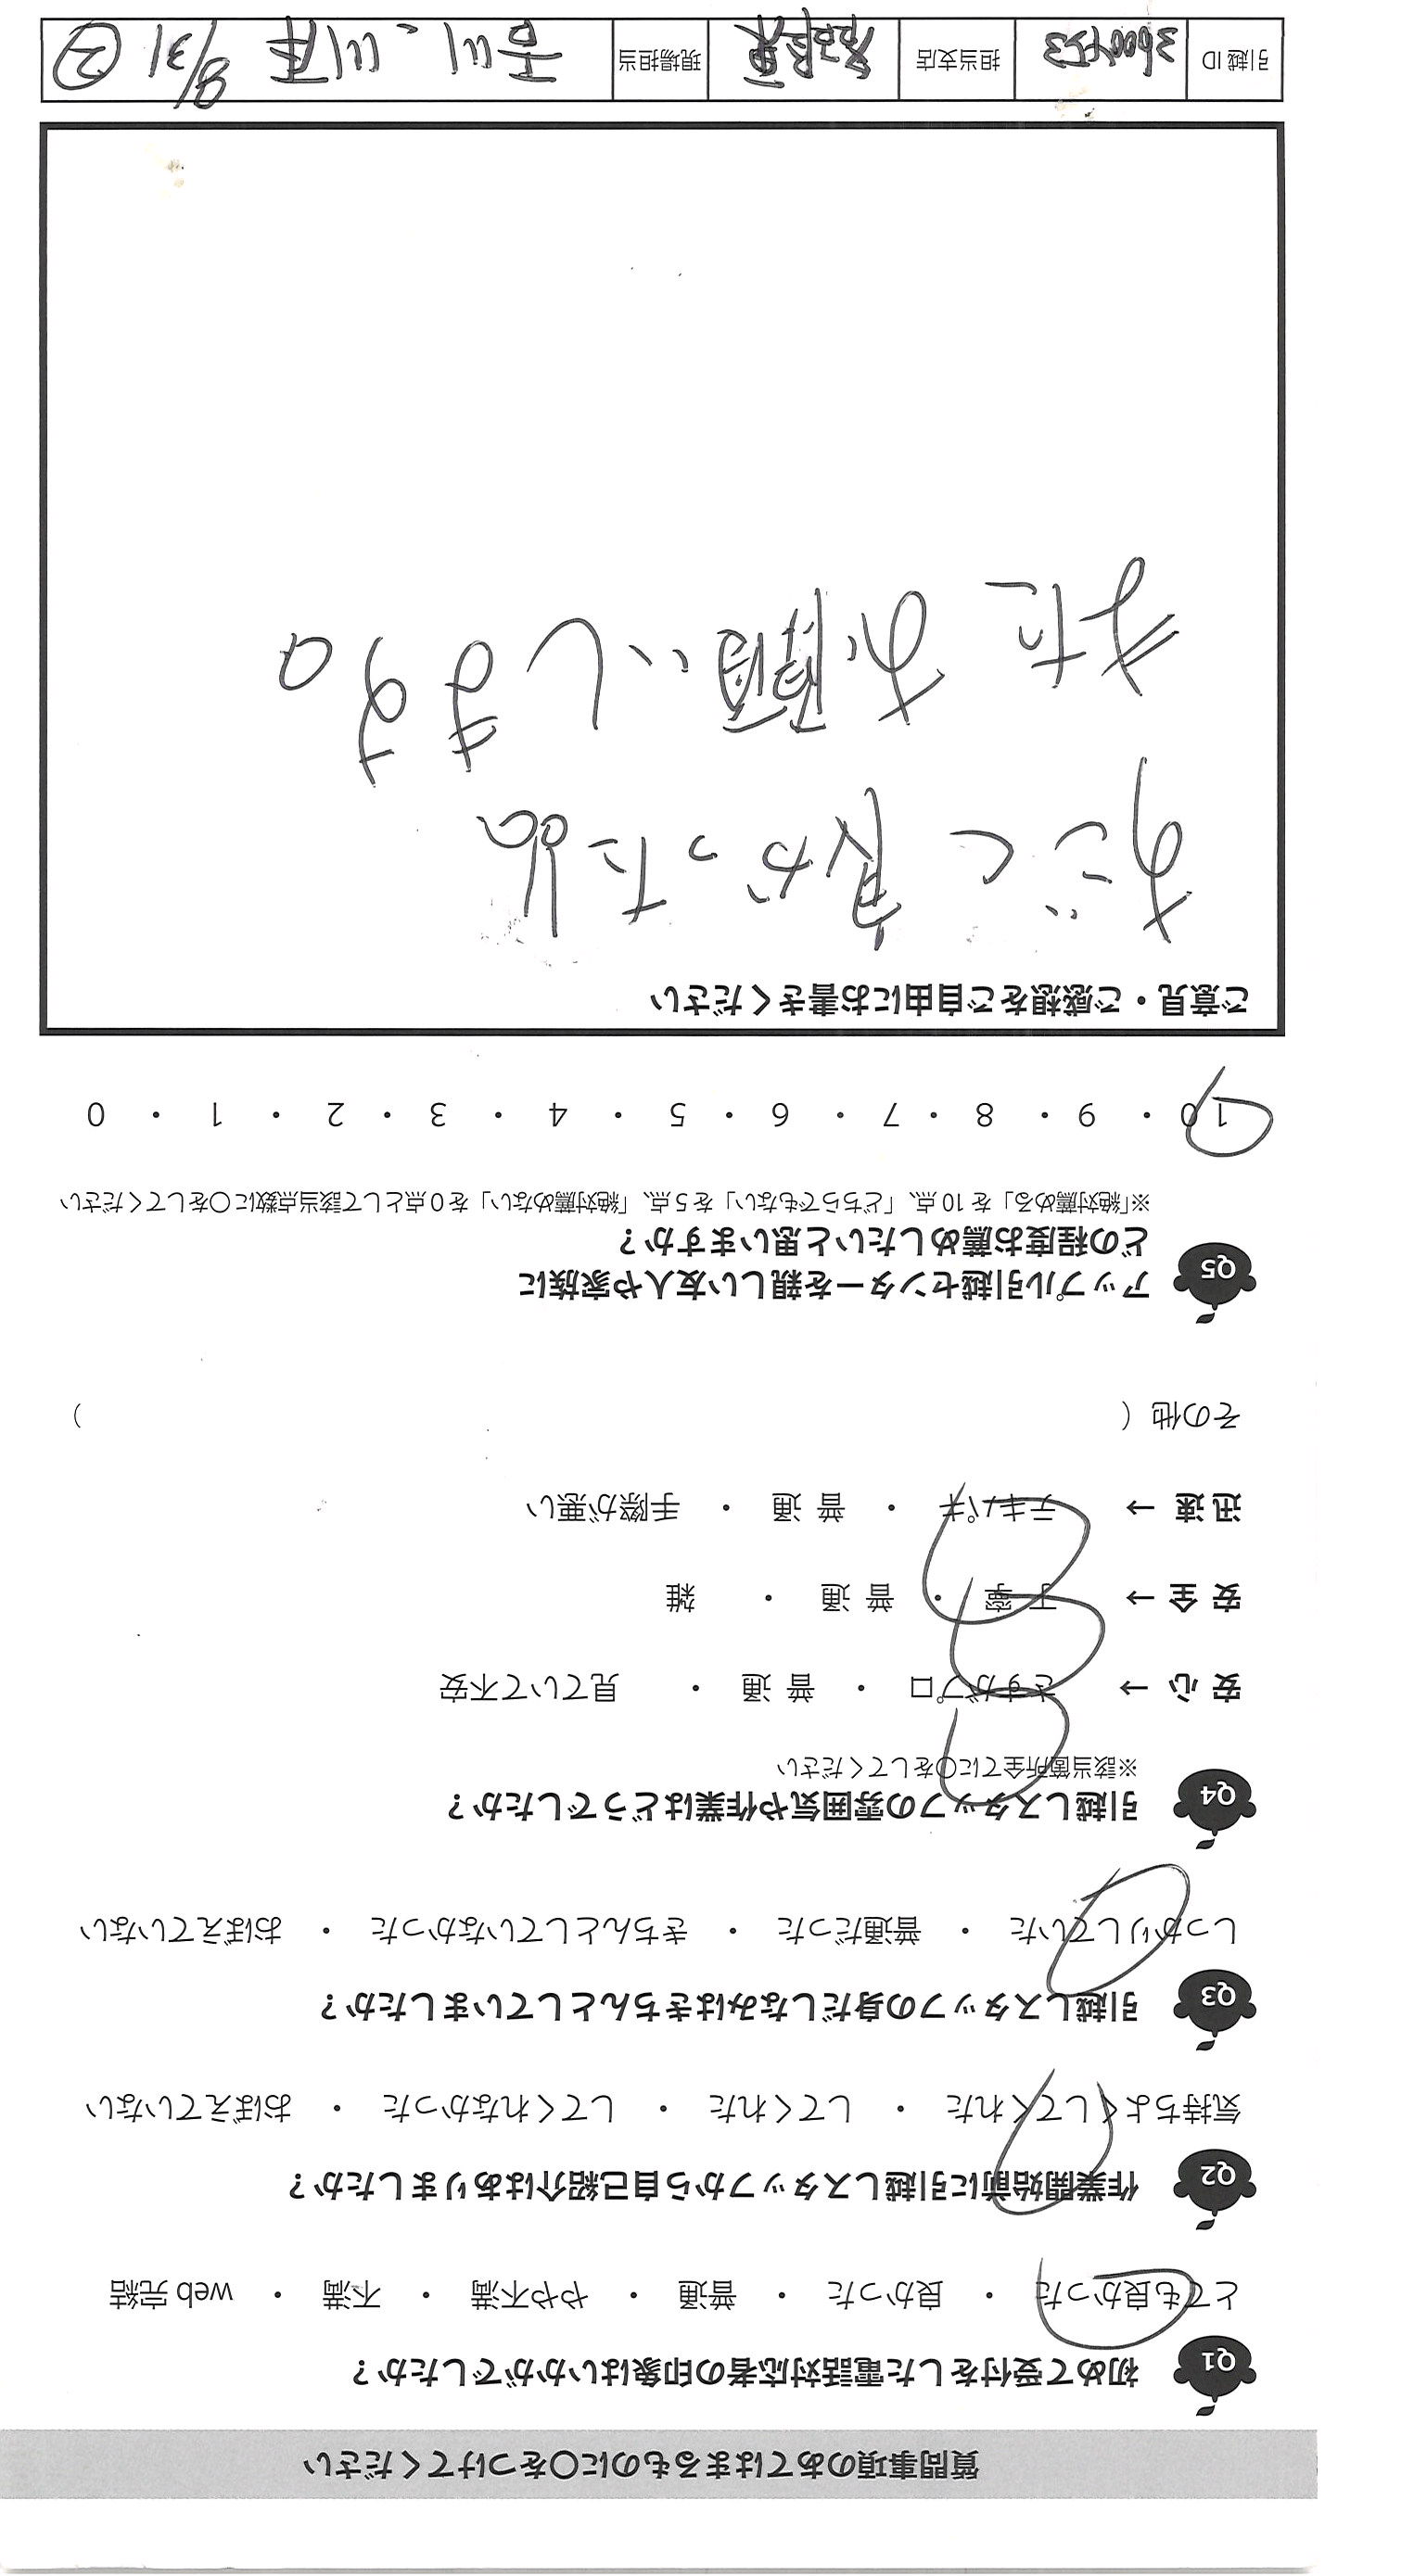 質問事項のあてはまるものに〇をつけてください
Q1 初めて受付をした電話対応者の印象はいかがでしたか？
とても良かった ・ 良かった ・ 普通 ・ やや不満 ・ 不満 ・ web 完結
Q2 作業開始前に引越しスタッフから自己紹介はありましたか？
気持ちよくしてくれた ・ してくれた ・ してくれなかった ・ おぼえていない
Q3 引越しスタッフの身だしなみはきちんとしていましたか？
しっかりしていた ・ 普通だった ・ きちんとしていなかった ・ おぼえていない
Q4 引越しスタッフの雰囲気や作業はどうでしたか？
※該当箇所全てに〇をしてください
安 心 → さすがプロ ・ 普 通 ・ 見ていて不安
安 全 → 丁 寧 ・ 普 通 ・ 雑
迅 速 → テキパキ ・ 普 通 ・ 手際が悪い
その他（ ）
Q5 アップル引越センターを親しい友人や家族に
どの程度お薦めしたいと思いますか？
※「絶対薦める」を 10 点、「どちらでもない」を 5 点、「絶対薦めない」を 0 点として該当点数に〇をしてください
10 ・ 9 ・ 8 ・ 7 ・ 6 ・ 5 ・ 4 ・ 3 ・ 2 ・ 1 ・ 0
ご意見・ご感想をご自由にお書きください
すごく良かった
また お願いします。
引越 ID 担当支店 奈良 現場担当 吉川、川 8/31 ②